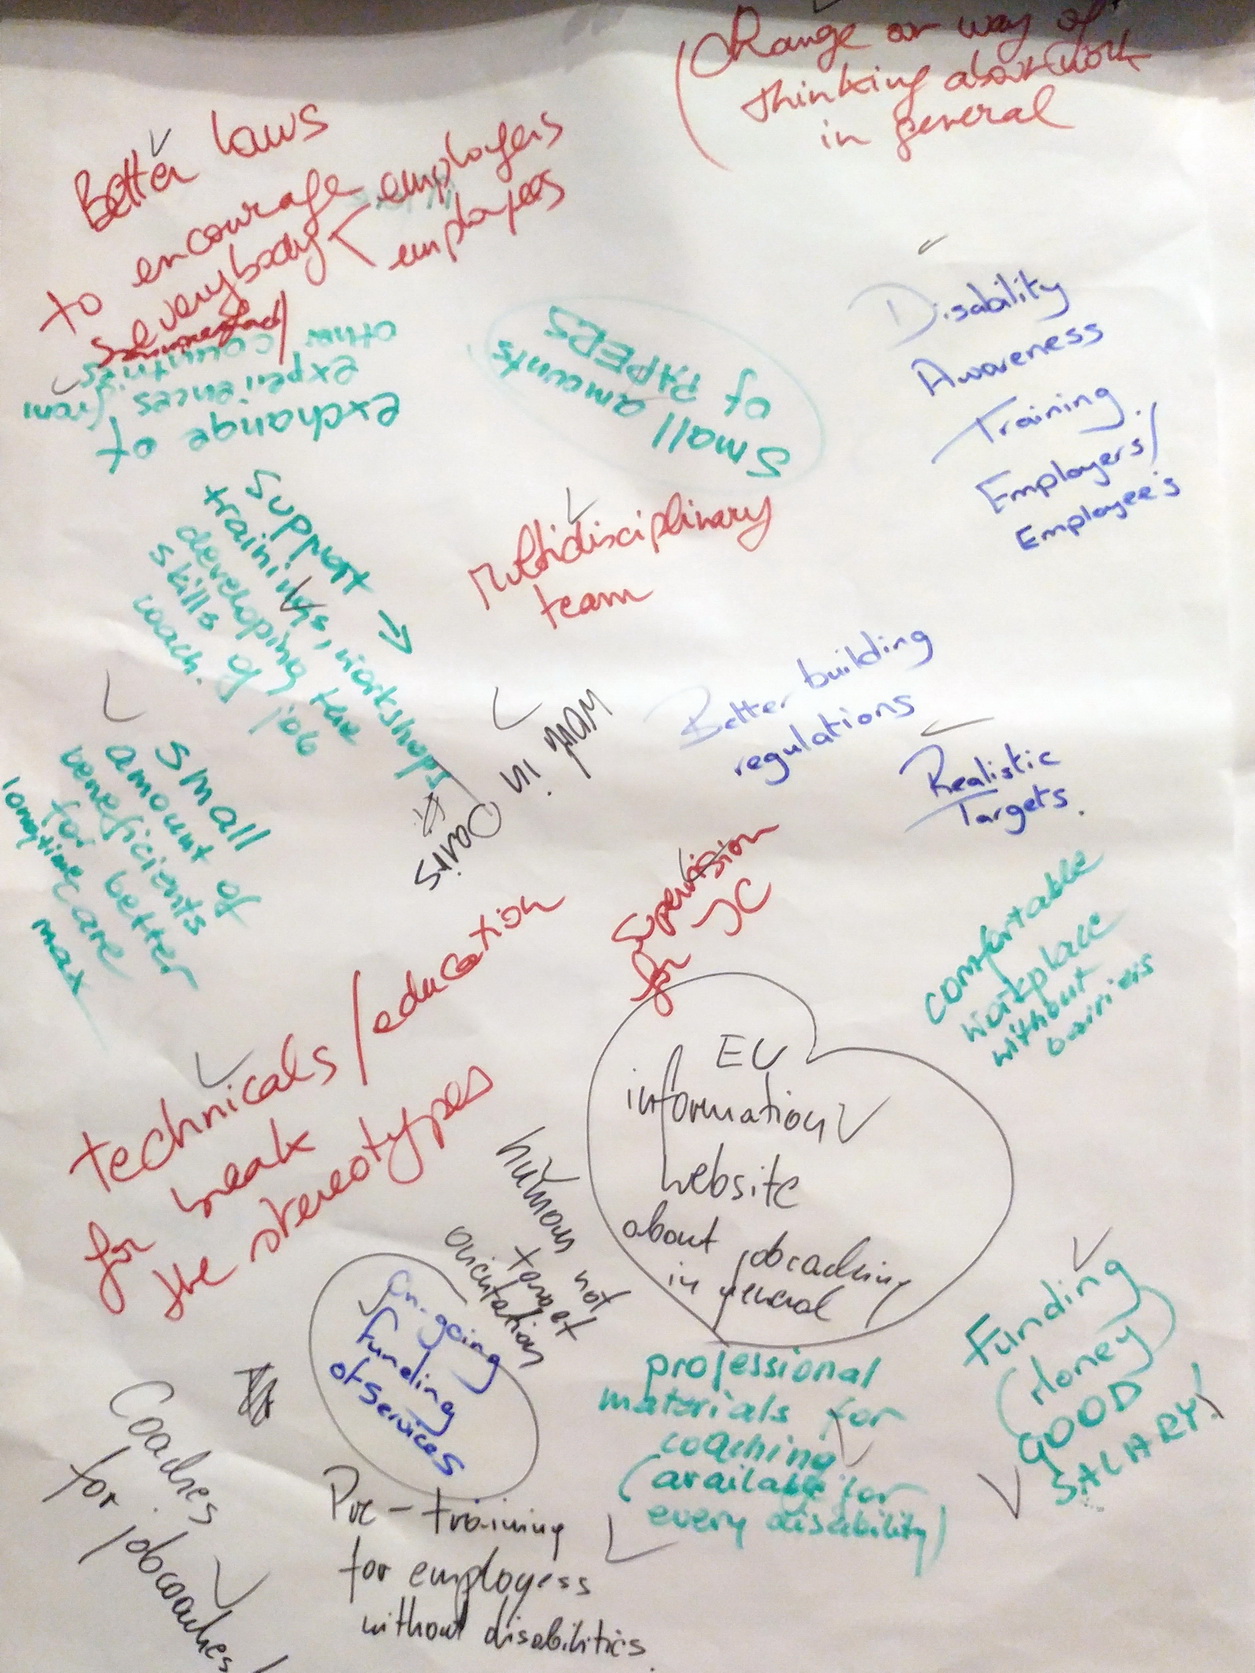 (Change our way of
thinking about work
in general
Better laws
to encourage
everybody < employers
employees
exchange of
experiences from
other countries
Small amounts
of PAPERS
Disability
Awareness
Training
Employers/
Employee's
Support →
trainings, workshops
developing the
skills of job
coach.
Multidisciplinary
team
Better building
regulations
Realistic
Targets.
in
Paris
Small
amount of
beneficients
for better
longtime care
max
Supervision
for JC
comfortable
workplace
without
bairieis
technicals/education
for break
the stereotypes
EU
information
website
about jobcaching
in general
human not
target
orientation
On-going
Funding
of services
Funding
(Money)
GOOD
SALARY!
professional
materials for
coaching
(available for
every disability)
Coaches
for jobcoaches!
Pre-training
for employess
without disabilities.